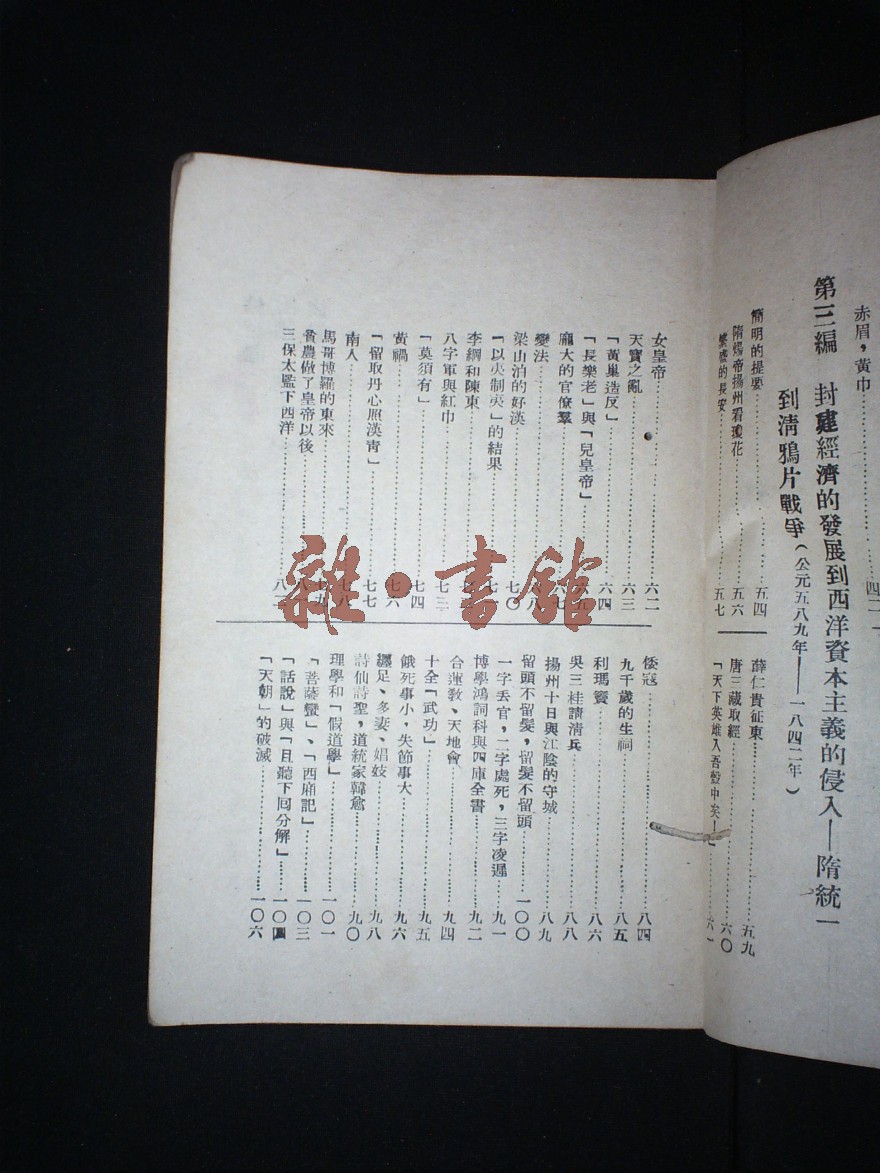 赤眉，黃巾
第三編 封建經濟的發展到西洋資本主義的侵入——隋統一
到淸鴉片戰爭（公元五八九年——一八四二年）
簡明的提要……五四
隋煬帝揚州看瓊花……五六
繁盛的長安……五七
薛仁貴征東……五九
唐三藏取經……六〇
「天下英雄入吾彀中矣！」……六一
女皇帝……六二
天寶之亂……六三
「黃巢造反」……六四
「長樂老」與「兒皇帝」……六五
龐大的官僚羣……六七
變法……六八
梁山泊的好漢……七〇
「以夷制夷」的結果……七
李綱和陳東……七
八字軍與紅巾……七三
「莫須有」……七四
黃禍……七六
「留取丹心照漢靑」……七七
南人……七八
馬哥博羅的東來……七九
貧農做了皇帝以後……八
三保太監下西洋……八
倭寇……八四
九千歲的生祠……八五
利瑪竇……八六
吳三桂請淸兵……八八
揚州十日與江陰的守城……八九
留頭不留髮，留髮不留頭……一〇〇
一字丟官，二字處死，三字凌遲……九一
博學鴻詞科與四庫全書……九二
合運敎、天地會……九四
十全「武功」……九五
餓死事小，失節事大……九六
纏足、多妻、娼妓……九八
詩仙詩聖，道統家韓愈……九〇
理學和「假道學」……一〇一
「菩薩蠻」、「西廂記」……一〇三
「話說」與「且聽下囘分解」……一〇四
「天朝」的破滅……一〇六
雜·書館